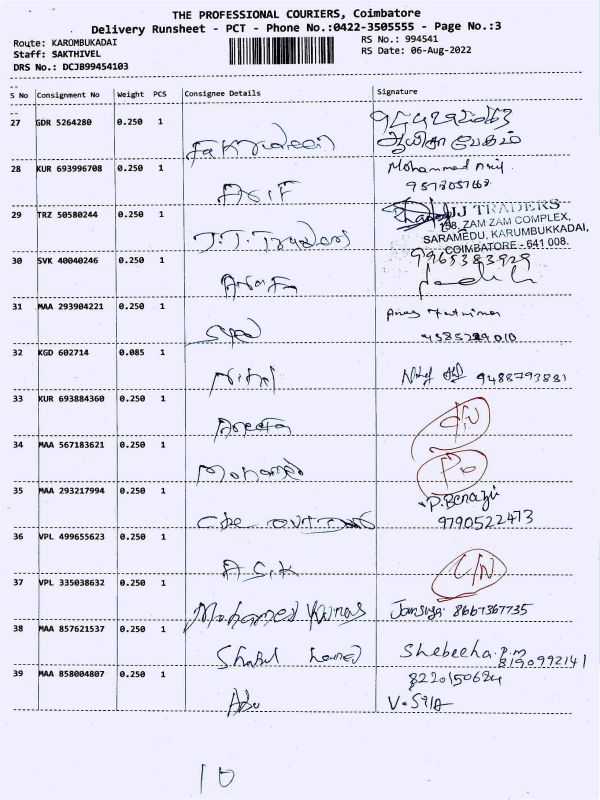 THE PROFESSIONAL COURIERS, Coimbatore
Delivery Runsheet - PCT - Phone No.:0422-3505555 - Page No.:3
Route: KARUMBUKADAI
RS No.: 994541
Staff: SAKTHIVEL
RS Date: 06-Aug-2022
DRS No.: DCJB99454103
S No Consignment No Weight PCS Consignee Details Signature
27 GDR 5264280 0.250 1
Fakrudeen
ஆயிஷா பேகம்
28 KUR 693996708 0.250 1 Mohammed Asif
ASIF
29 TRZ 50580244 0.250 1 JJ TRADERS
158, ZAM ZAM COMPLEX,
J.J. Traders SARAMEDU, KARUMBUKKADAI,
COIMBATORE - 641 008.
30 SVK 40040246 0.250 1 9965383929
31 MAA 293904221 0.250 1
Syed
32 KGD 602714 0.085 1
Nihal 9488793881
33 KUR 693884360 0.250 1 C/N
34 MAA 567183621 0.250 1
Mohamed
35 MAA 293217994 0.250 1 P.Benazir
9790522473
36 VPL 499655623 0.250 1
ASIK C/N
37 VPL 335038632 0.250 1
Mohamed Yunas 8667367735
38 MAA 857621537 0.250 1 Shebeeha.P.M
8190992141
39 MAA 858004807 0.250 1 8220150684
Abu
10